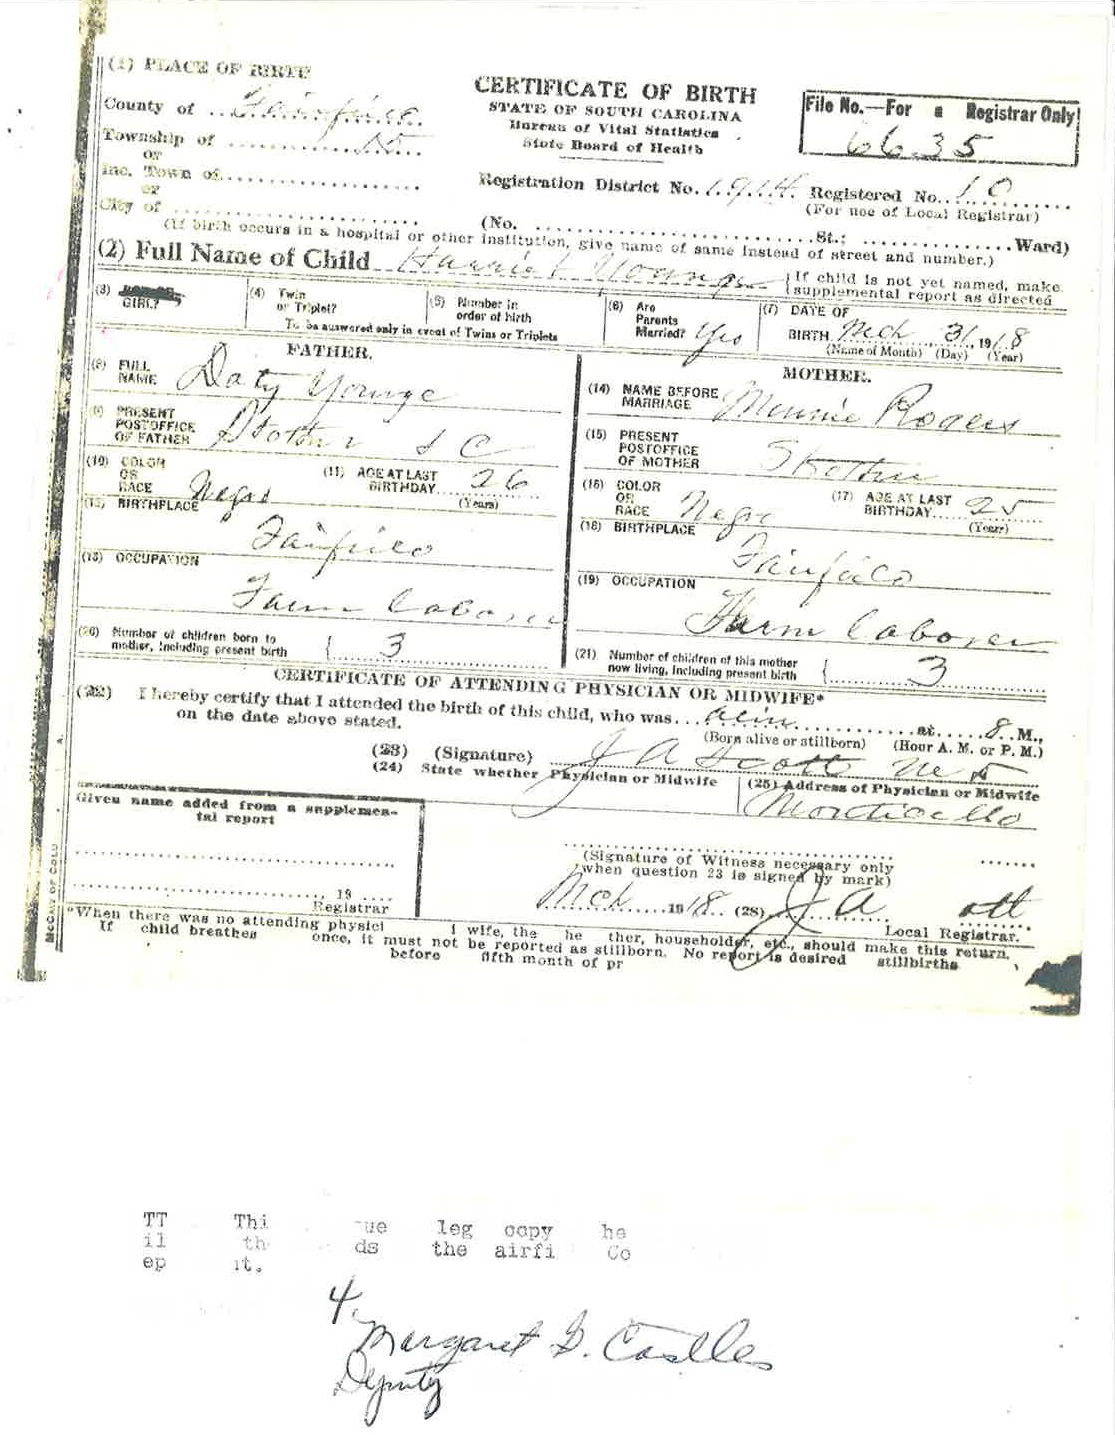 (1) PLACE OF BIRTH
County of Fairfield
Township of 15
or
Inc. Town of
or
City of
CERTIFICATE OF BIRTH
STATE OF SOUTH CAROLINA
Bureau of Vital Statistics
State Board of Health
File No.—For a Registrar Only
6635
Registration District No. 1914 Registered No. 10
(For use of Local Registrar)
(No. St.; Ward)
(If birth occurs in a hospital or other institution, give name of same instead of street and number.)
(2) Full Name of Child Harriet Younge
If child is not yet named, make supplemental report as directed
(3) GIRL?
(4) Twin or Triplet?
(5) Number in order of birth
To be answered only in event of Twins or Triplets
(6) Are Parents Married? Yes
(7) DATE OF BIRTH Mch 31, 1918
(Name of Month) (Day) (Year)
FATHER.
(8) FULL NAME Doty Younge
(9) PRESENT POSTOFFICE OF FATHER Strother S C
(10) COLOR OR RACE Negro
(11) AGE AT LAST BIRTHDAY 26
(Years)
(12) BIRTHPLACE
Fairfield
(13) OCCUPATION
Farm laborer
(20) Number of children born to mother, including present birth 3
MOTHER.
(14) NAME BEFORE MARRIAGE Minnie Rogers
(15) PRESENT POSTOFFICE OF MOTHER Strother
(16) COLOR OR RACE Negro
(17) AGE AT LAST BIRTHDAY 25
(Years)
(18) BIRTHPLACE
Fairfield
(19) OCCUPATION
Farm laborer
(21) Number of children of this mother now living, including present birth 3
CERTIFICATE OF ATTENDING PHYSICIAN OR MIDWIFE*
(22) I hereby certify that I attended the birth of this child, who was at 8 M.,
on the date above stated.
(Born alive or stillborn) (Hour A. M. or P. M.)
(23) (Signature) J A Scott M D
(24) State whether Physician or Midwife
(25) Address of Physician or Midwife
Monticello
Given name added from a supplemental report
19
Registrar
(Signature of Witness necessary only
when question 23 is signed by mark)
Mch 1918 (28) J A ott
Local Registrar.
*When there was no attending physici wife, the he ther, householder, etc., should make this return.
If child breathes once, it must not be reported as stillborn. No report is desired stillbirths
before fifth month of pr
McCaw of Colu
TT Thi ue leg copy he
il th ds the airfi Co
ep it.
4.
Margaret G. Castles
Deputy